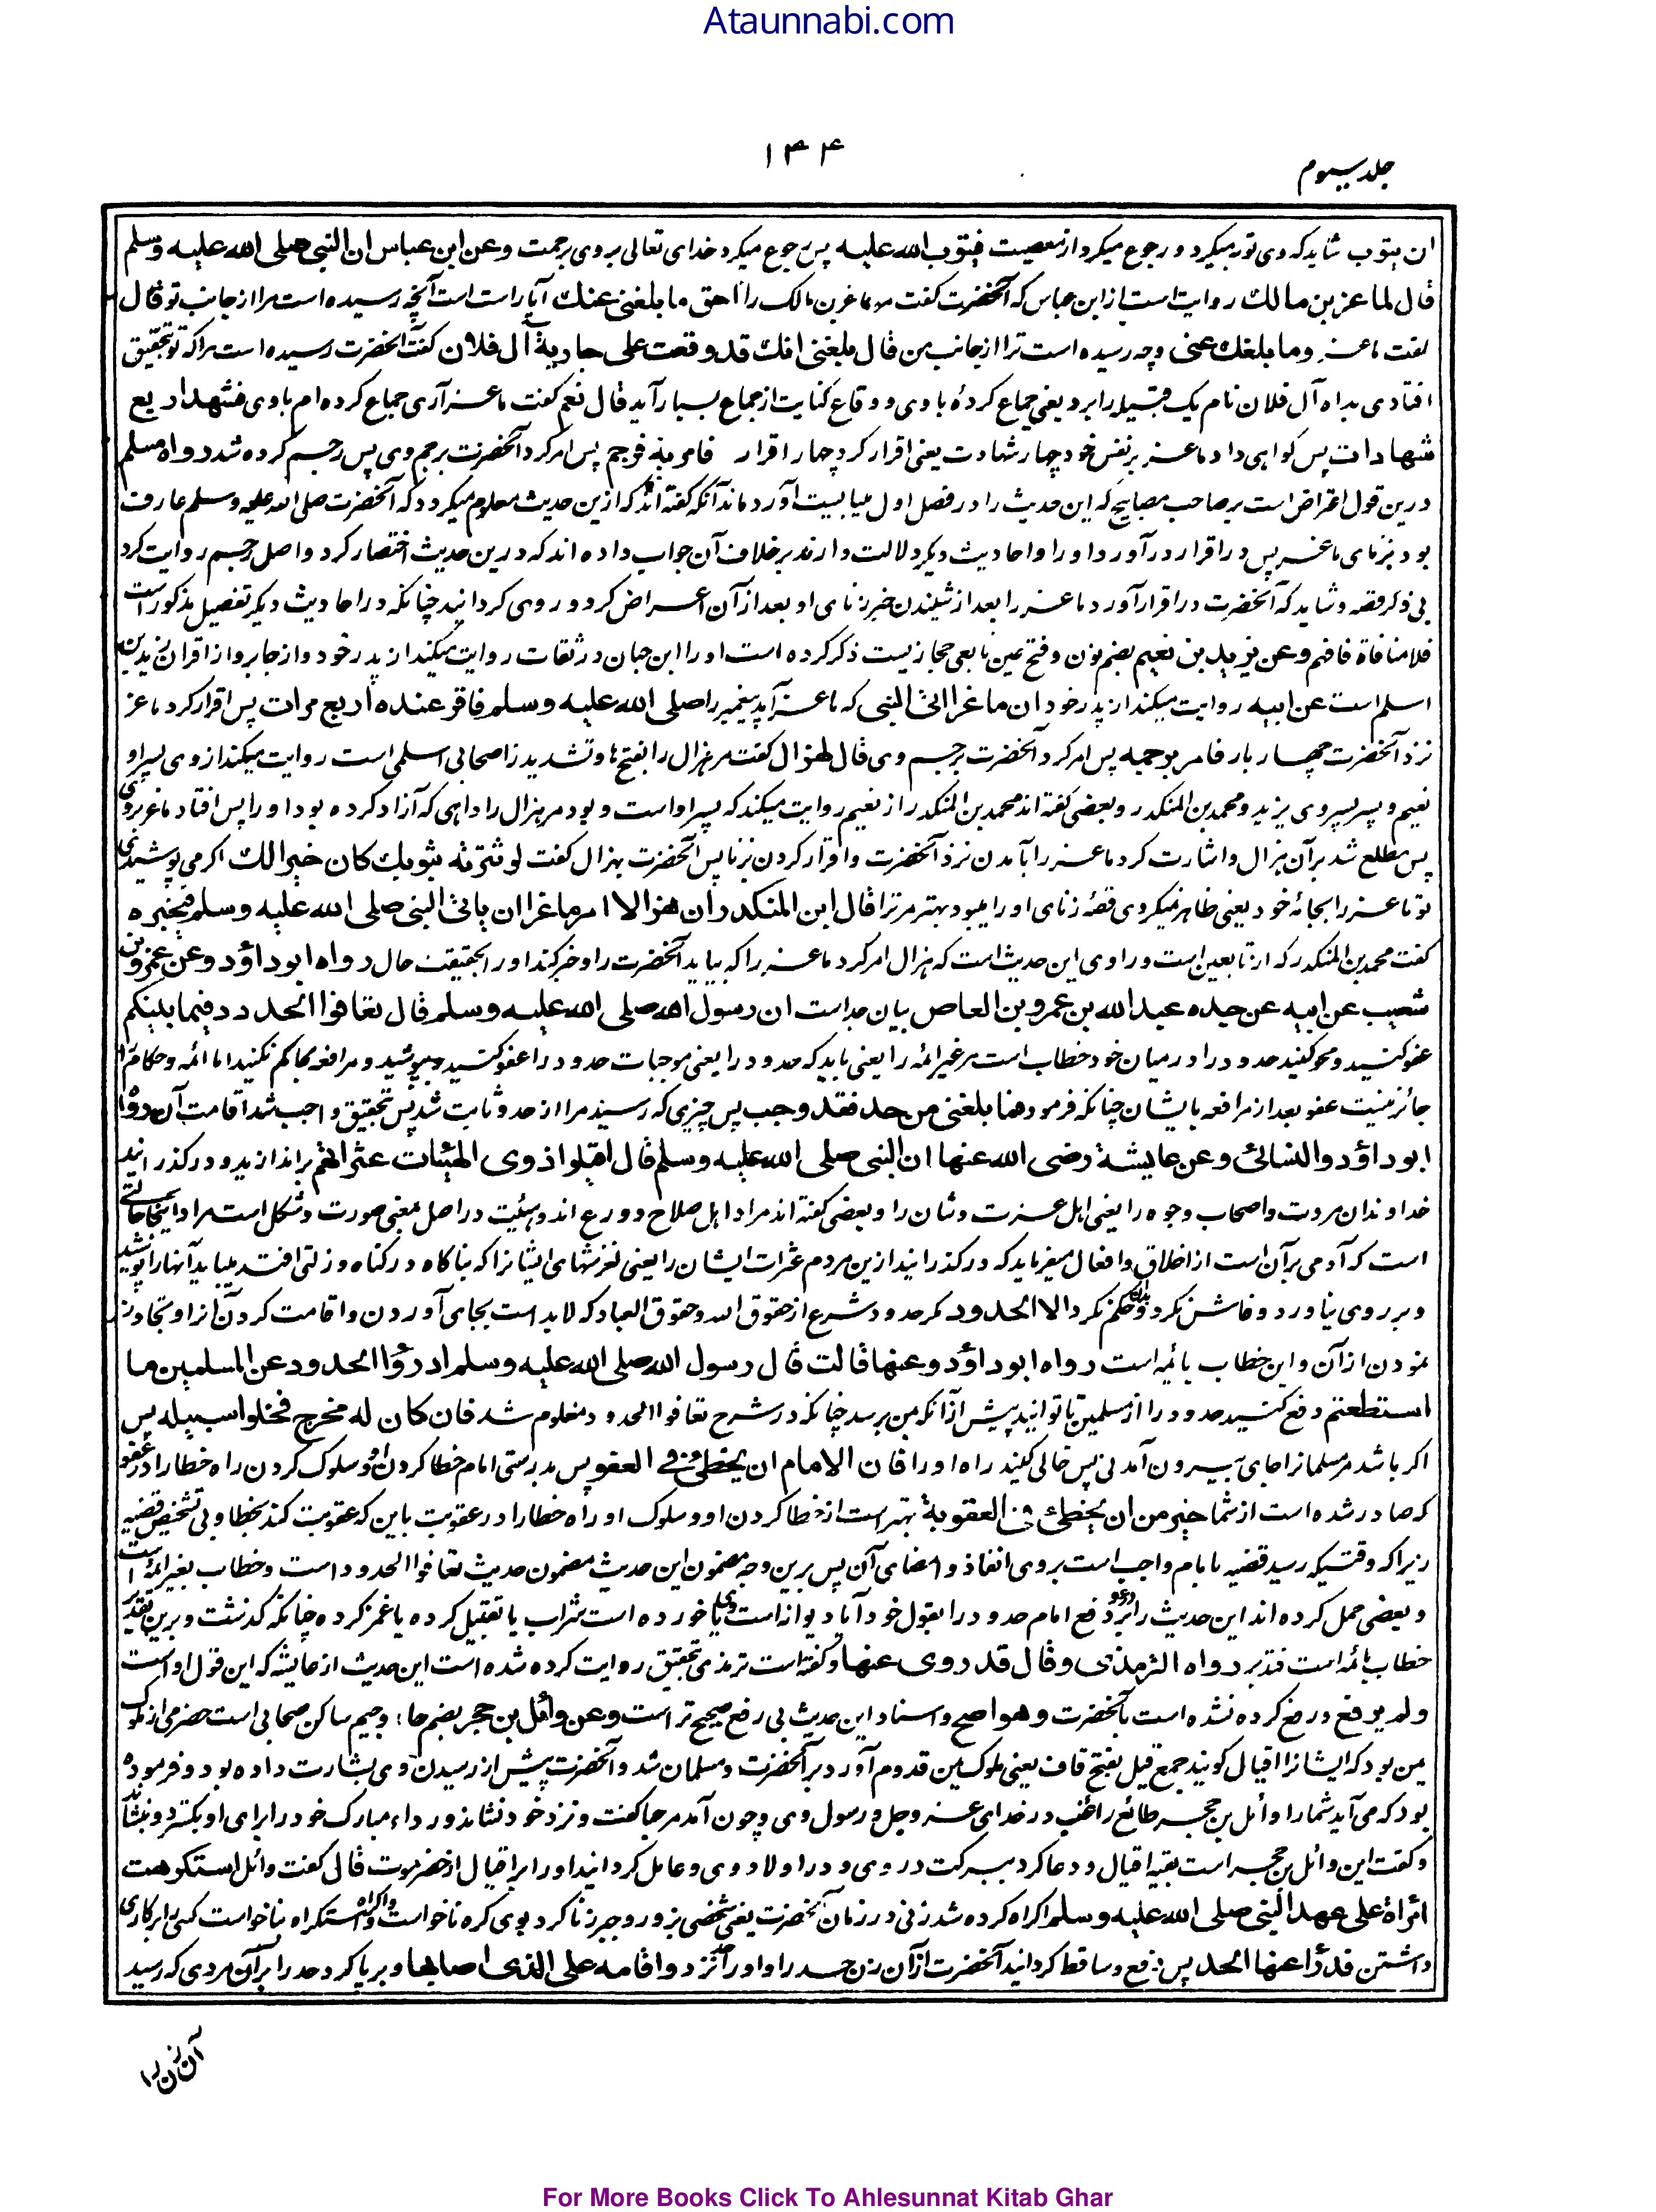 Ataunnabi.com
۱۳۴
جلد سیوم
ان یتوب شاید که وی توبه میکرد و رجوع میکرد از معصیت فیتوب الله علیه پس رجوع میکرد خدای تعالی بروی برحمت وعن ابن عباس ان النبی صلی الله علیه وسلم
قال لماعز بن مالك روایت است از ابن عباس که آنحضرت کفت مر ماعز بن مالک را احق ما بلغنی عنك آیا راست است آنچه رسیده است مرا از جانب تو قال
کفت ماعز وما بلغك عنی وچه رسیده است ترا از جانب من قال بلغنی انك قد وقعت علی جاریة آل فلان کفت آنحضرت رسیده است مرا که تو بتحقیق
افتادی بداه آل فلان نام یک قبیله را برد یعنی جماع کردۀ با وی و وقاع کنایت از جماع بسیار آید قال نعم کفت ماعز آری جماع کرده ام با وی فشهد اربع
شهادات پس کواهی داد ماعز بر نفس خود چهار شهادت یعنی اقرار کرد چهار اقرار فامر به فرجم پس امر کرد آنحضرت برجم وی پس رجم کرده شد رواه مسلم
درین قول اعتراض است بر صاحب مصابیح که این حدیث را در فصل اول میبایست آورد ماند آنکه کفته اند که ازین حدیث معلوم میکردد که آنحضرت صلی الله علیه وسلم عارف
بود بزنای ماعز پس در اقرار در آورد او را و احادیث دیکر دلالت دارند بر خلاف آن جواب داده اند که درین حدیث اختصار کرد و اصل رجم روایت کرد
بی ذکر قصه و شاید که آنحضرت در اقرار آورد ماعز را بعد از شنیدن خبر زنای او بعد از آن اعراض کرد و روی کردانید چنانکه در احادیث دیکر تفصیل مذکور است
فلا منافاة فافهم وعن یزید بن نعیم بضم نون و فتح عین تابعی حجازیست ذکر کرده است او را ابن حبان در ثقات روایت میکند از پدر خود و از جابر و از اقران زید بن
اسلم است عن ابیه روایت میکند از پدر خود ان ماعزا اتی النبی که ماعز آمد پیغمبر را صلی الله علیه وسلم فاقر عنده اربع مرات پس اقرار کرد ماعز
نزد آنحضرت چهار بار فامر برجمه پس امر کرد آنحضرت برجم وی قال لهزال کفت مر هزال را بفتح ها و تشدید زا صحابی اسلمی است روایت میکند از وی پسر او
نعیم و پسر پسر وی یزید و محمد بن المنکدر و بعضی کفته اند محمد بن المنکدر از نعیم روایت میکند که پسر او است و بود مر هزال را داهی که آزاد کرده بود او را پس افتاد ماعز بروی
پس مطلع شد بر آن هزال و اشارت کرد ماعز را بآمدن نزد آنحضرت و اقرار کردن بزنا پس آنحضرت بهزال کفت لو سترته بثوبك کان خیرا لك اکر می پوشیدی
تو ماعز را بجامۀ خود یعنی ظاهر نمیکردی قصۀ زنای او را میبود بهتر مر ترا قال ابن المنکدر ان هزالا امر ماعزا ان یاتی النبی صلی الله علیه وسلم فیخبره
کفت محمد بن المنکدر که از تابعین است و راوی این حدیث است که هزال امر کرد ماعز را که بیاید آنحضرت را و خبر کند او را بحقیقت حال رواه ابو داؤد وعن عمرو بن
شعیب عن ابیه عن جده عبد الله بن عمرو بن العاص بیان جد است ان رسول الله صلی الله علیه وسلم قال تعافوا الحدود فیما بینکم
عفو کنید و محو کنید حدود را در میان خود خطاب است مر غیر ائمه را یعنی باید که حدود را یعنی موجبات حدود را عفو کنید و بپوشید و مرافعه بحاکم نکنید اما ائمه و حکام را
جائز نیست عفو بعد از مرافعه بایشان چنانکه فرمود فما بلغنی من حد فقد وجب پس چیزی که رسید مرا از حد و ثابت شد پس بتحقیق واجب شد اقامت آن رواه
ابو داؤد والنسائی وعن عایشة رضی الله عنها ان النبی صلی الله علیه وسلم قال اقیلوا ذوی الهیئات عثراتهم براندازید و درکذرانید
خداوندان مروت و اصحاب وجوه را یعنی اهل عزت و شان را و بعضی کفته اند مراد اهل صلاح و ورع اند و هیئیت در اصل بمعنی صورت و شکل است مراد اینجا حالتی
است که آدمی بر آن است از اخلاق و افعال میفرماید که درکذرانید ازین مردم عثرات ایشان را یعنی لغزشهای ایشانرا که بناکاه در کناه و زلتی افتند میباید آنها را پوشید
و بر روی نیاورد و فاش نکرد و حکم نکرد الا الحدود مکر حدود شرع از حقوق الله و حقوق العباد که لابد است بجای آوردن و اقامت کردن آنرا و تجاوز
نمودن از آن و این خطاب بائمه است رواه ابو داؤد وعنها قالت قال رسول الله صلی الله علیه وسلم ادرؤا الحدود عن المسلمین ما
استطعتم دفع کنید حدود را از مسلمین تا توانید پیش از آنکه بمن برسد چنانکه در شرح تعافوا الحدود معلوم شد فان کان له مخرج فخلوا سبیله پس
اکر باشد مر مسلمانرا جای بیرون آمدنی پس خالی کنید راه او را فان الامام ان یخطئ فی العفو پس بدرستی امام خطا کردن او و سلوک کردن راه خطا را در عفو
که صادر شده است از شما خیر من ان یخطئ فی العقوبة بهتر است از خطا کردن او و سلوک او راه خطا را در عقوبت باین که عقوبت کند بخطا و بی تشخیص قضیه
زیرا که وقتیکه رسید قضیه بامام واجب است بروی انفاذ و امضای آن پس برین وجه مضمون این حدیث مضمون حدیث تعافوا الحدود است و خطاب بغیر ائمه است
و بعضی حمل کرده اند این حدیث را بر دفع امام حدود را بقول خود آیا دیوانه است وی یا خورده است شراب یا تقبیل کرده یا غمز کرده چنانکه کذشت و برین تقدیر
خطاب بائمه است فتدبر رواه الترمذی وقال قد روی عنها و کفته است ترمذی بتحقیق روایت کرده شده است این حدیث از عایشه که این قول او است
ولم یرفع و رفع کرده نشده است بآنحضرت وهو اصح و اسناد این حدیث بی رفع صحیح تر است وعن وائل بن حجر بضم حاء و جیم ساکن صحابی است حضرمی از ملوک
یمن بود که ایشانرا اقیال کویند جمع قیل بفتح قاف یعنی ملوک یمن قدوم آورد بر آنحضرت و مسلمان شد و آنحضرت پیش از رسیدن وی بشارت داده بود و فرموده
بود که می آید شما را وائل بن حجر طائع راغب در خدای عز وجل و رسول وی و چون آمد مرحبا کفت و نزد خود نشاند و رداء مبارک خود را برای او بکسترد و بنشاند
و کفت این وائل بن حجر است بقیه اقیال و دعا کرد ببرکت در وی و در اولاد وی و عامل کردانید او را بر اقیال از حضرموت قال کفت وائل استکرهت
امرأة علی عهد النبی صلی الله علیه وسلم اکراه کرده شد زنی در زمان آنحضرت یعنی شخصی بزور و جبر زنا کرد بوی کره ناخواست و اکراه و استکراه بناخواست کسی را بر کاری
داشتن فدرأ عنها الحد پس دفع و ساقط کردانید آنحضرت از آن زن حد را و او را حد نزد واقامه علی الذی اصابها و برپا کرد حد را بر آن مردی که رسید
آن زن را
For More Books Click To Ahlesunnat Kitab Ghar